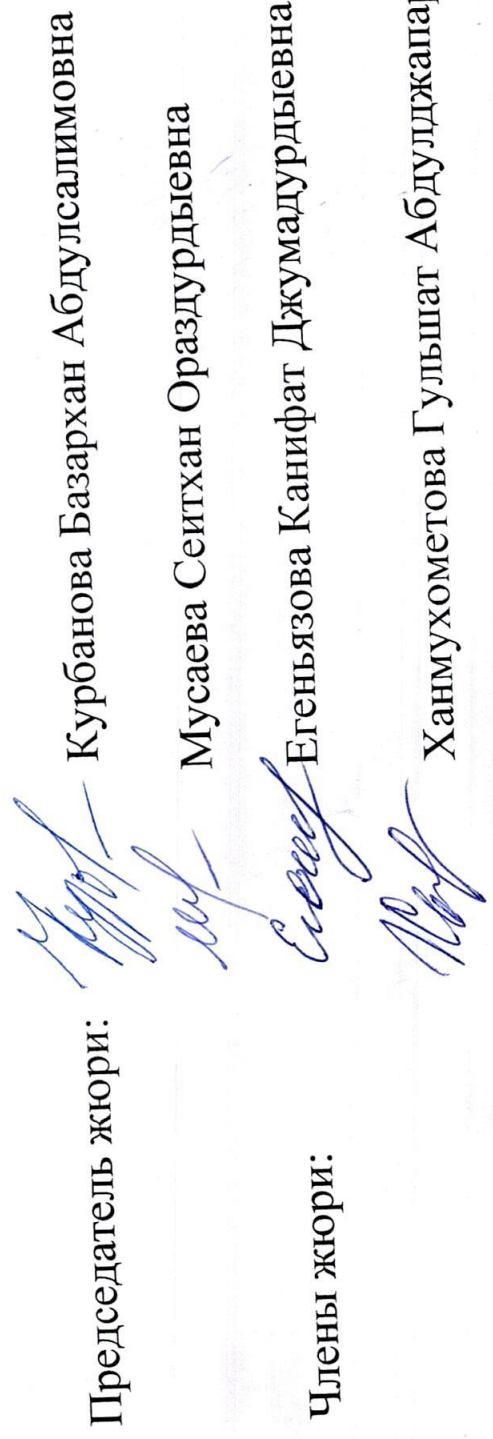 Председатель жюри: Курбанова Базархан Абдулсалимовна
Мусаева Сеитхан Ораздурдыевна
Члены жюри: Егеньязова Канифат Джумадурдыевна
Ханмухометова Гульшат